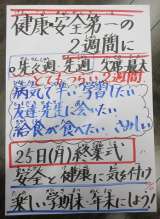 健康・安全第一の
2週間に
とてもつらい2週間
病気して辛い、学習したい
友達、先生に会いたい
給食が食べたい、さみしい
25日(月)終業式
安全と健康に気を付け
楽しい学期末・年末にしよう!